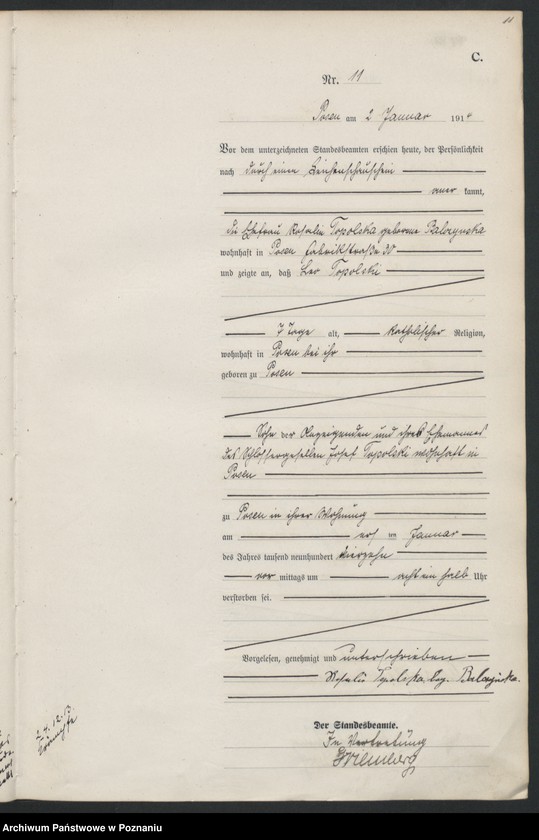 11
C.
Nr. 11
Posen am 2 Januar 1914
Vor dem unterzeichneten Standesbeamten erschien heute, der Persönlichkeit
nach durch einen Leichenschauschein
aner kannt,
die Ehefrau Rosalie Topolska geborene
wohnhaft in Posen Fabrikstraße 30
und zeigte an, daß Leo Topolski
7 Tage alt, katholischer Religion,
wohnhaft in Posen bei ihr
geboren zu Posen
Sohn der Anzeigenden und ihres Ehemannes
des Schlossergesellen Josef Topolski wohnhaft in
Posen
zu Posen in ihrer Wohnung
am ten Januar
des Jahres tausend neunhundert vierzehn
vor mittags um acht ein halb Uhr
verstorben sei.
Vorgelesen, genehmigt und unterschrieben
Topolska
Der Standesbeamte.
In Vertretung
Archiwum Państwowe w Poznaniu